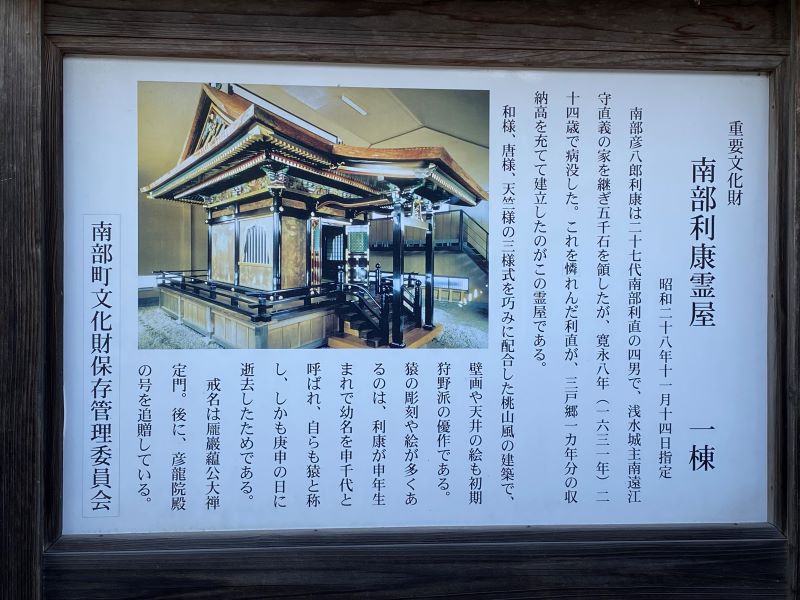 重要文化財
南部利康霊屋　一棟
昭和二十八年十一月十四日指定
南部彦八郎利康は二十七代南部利直の四男で、浅水城主南遠江
守直義の家を継ぎ五千石を領したが、寛永八年（一六三一年）二
十四歳で病没した。これを憐れんだ利直が、三戸郷一カ年分の収
納高を充てて建立したのがこの霊屋である。
和様、唐様、天竺様の三様式を巧みに配合した桃山風の建築で、
壁画や天井の絵も初期
狩野派の優作である。
猿の彫刻や絵が多くあ
るのは、利康が申年生
まれで幼名を申千代と
呼ばれ、自らも猿と称
し、しかも庚申の日に
逝去したためである。
戒名は龎巖蘊公大禅
定門。後に、彦龍院殿
の号を追贈している。
南部町文化財保存管理委員会